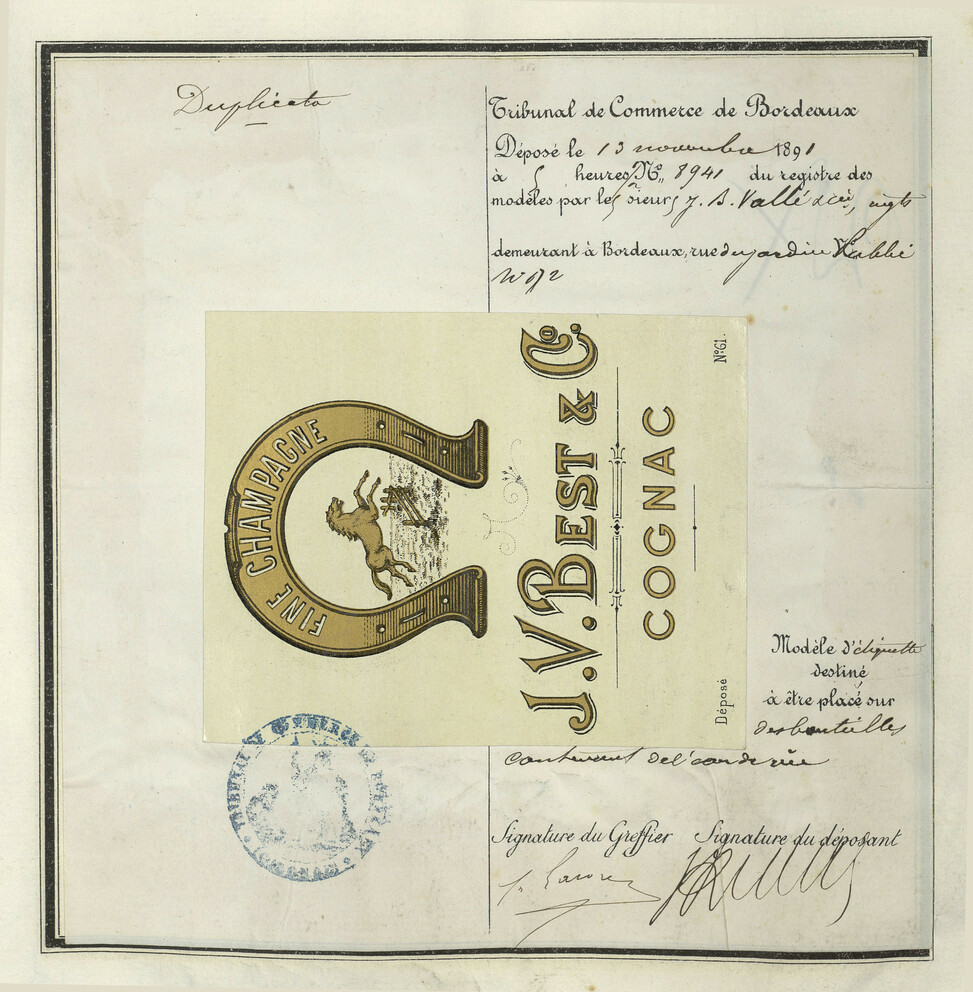 Duplicata
Tribunal de Commerce de Bordeaux
Déposé le 13 novembre 1891
à 5 heures, No 8941 du registre des
modèles par les sieurs J. B. Vallé
demeurant à Bordeaux, rue du jardin
FINE CHAMPAGNE
J.V. BEST & Co.
COGNAC
Déposé
No 61.
Modèle d'étiquette
destiné
à être placé sur
des bouteilles
contenant de l'eau de vie
Signature du Greffier Signature du déposant
TRIBUNAL DE COMMERCE DE BORDEAUX